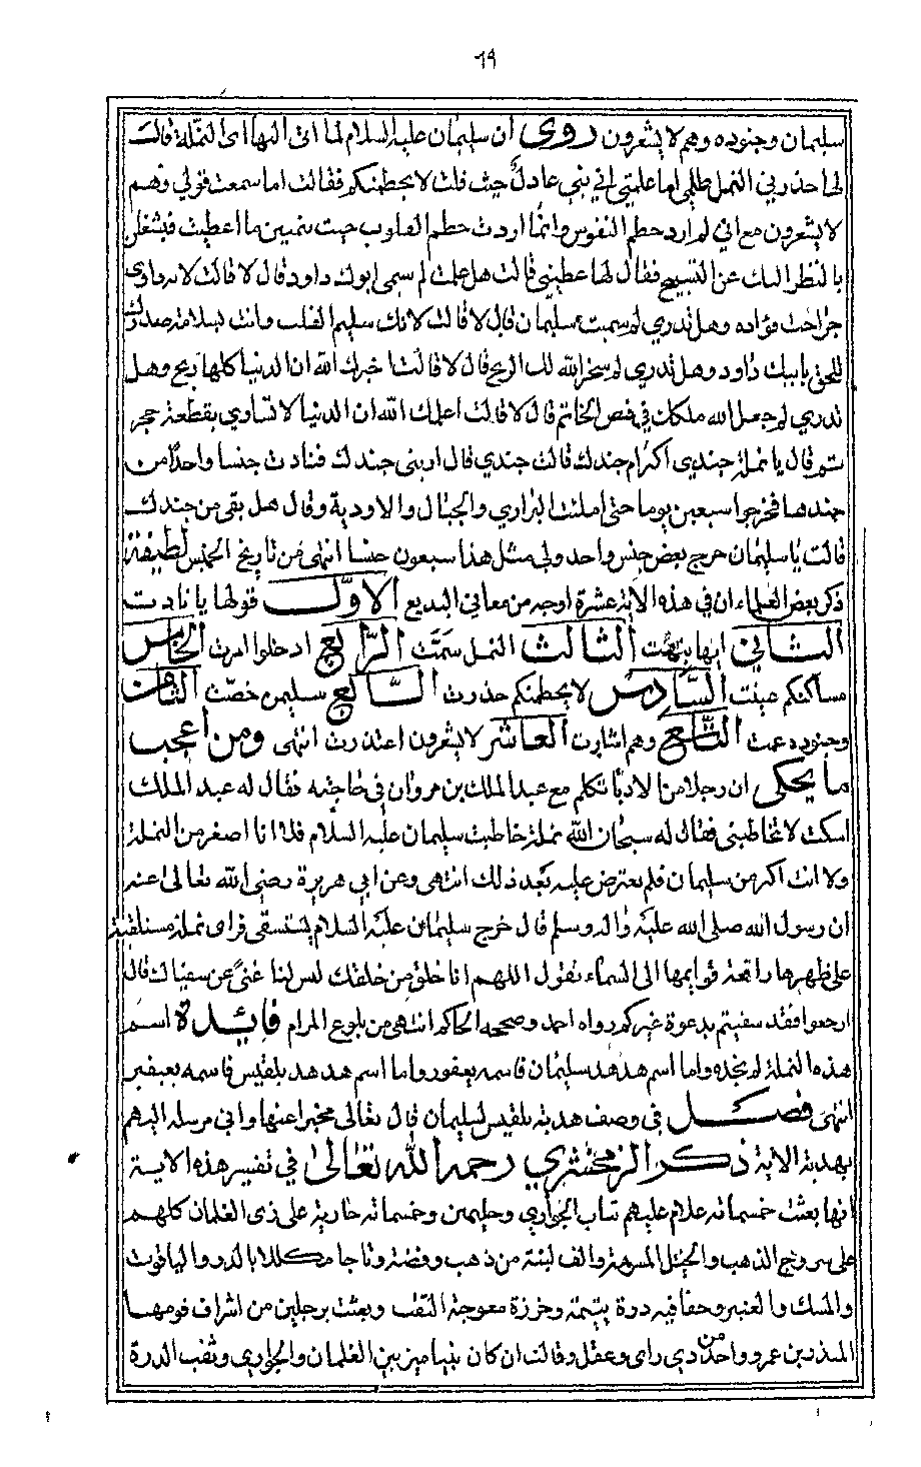 ٦٩
سليمان وجنوده وهم لا يشعرون روي ان سليمان عليه السلام لما اتى اليها اي النملة قالت
لها حذرتي النمل ظلمي اما علمتي اني نبي عادل حيث قلت لا يحطمنكم فقالت اما سمعت قولي وهم
لا يشعرون مع اني لم ارد حطم النفوس وانما اردت حطم القلوب حيث يتمنين ما اعطيت فيشتغلن
بالنظر اليك عن التسبيح فقال لها عظيني قالت هل علمت لم سمي ابوك داود قال لا قالت لانه داوى
جراحت فؤاده وهل تدري لم سميت سليمان قال لا قالت لانك سليم القلب وانت لسلامة صدرك
تلحق بابيك داود وهل تدري لم سخر الله لك الريح قال لا قالت اخبرك الله ان الدنيا كلها ريح وهل
تدري لم جعل الله ملكك في فص الخاتم قال لا قالت اعلمك الله ان الدنيا لا تساوي بقطعة حجر
ثم قال يا نملة جندي اكثر ام جندك قالت جندي قال اريني جندك فنادت جنسا واحدا من
جندها فخرجوا سبعين يوما حتى املئت البراري والجبال والاودية وقال هل بقي من جندك
قالت يا سليمان خرج بعض جنس واحد ولي مثل هذا سبعون جنسا انتهى من تاريخ الخميس لطيفة
ذكر بعض العلماء ان في هذه الاية عشرة اوجه من معاني البديع الاول قولها يا نادت
الثاني ايها نبهت الثالث النمل سمت الرابع ادخلوا امرت الخامس
مساكنكم عينت السادس لا يحطمنكم حذرت السابع سليمن خصت الثامن
وجنوده عمت التاسع وهم اشارت العاشر لا يشعرون اعتذرت انتهى ومن اعجب
ما يحكى ان رجلا من الادبا تكلم مع عبد الملك بن مروان في حاجته فقال له عبد الملك
اسكت لا تخاطبني فقال له سبحان الله نملة خاطبت سليمان عليه السلام فلا انا اصغر من النملة
ولا انت اكبر من سليمان فلم يعترض عليه بعد ذلك انتهى وعن ابي هريرة رضي الله تعالى عنه
ان رسول الله صلى الله عليه واله وسلم قال خرج سليمان عليه السلام يستسقي فراى نملة مستلقية
على ظهرها رافعة قوايمها الى السماء تقول اللهم انا خلق من خلقك ليس لنا غنى عن سقياك قال
ارجعوا فقد سقيتم بدعوة غيركم رواه احمد وصححه الحاكم انتهى من بلوغ المرام فائدة اسم
هذه النملة لم نجده واما اسم هدهد سليمان فاسمه يعفور واما اسم هدهد بلقيس فاسمه يعيفير
انتهى فصل في وصف هدية بلقيس لسليمان قال تعالى مخبرا عنها واني مرسلة اليهم
بهدية الاية ذكر الزمخشري رحمه الله تعالى في تفسير هذه الاية
انها بعثت خمسمائه غلام عليهم ثياب الجواري وحليهن وخمسمائه جارية على زي الغلمان كلهم
على سروج الذهب والخيل المسومة والف لبنة من ذهب وفضة وتاجا مكللا بالدر والياقوت
والمسك والعنبر وحقا فيه درة يتيمة وخرزة معوجة الثقب وبعثت برجلين من اشراف قومها
المنذر بن عمرو واحد من ذي راي وعقل وقالت ان كان نبيا ميز بين الغلمان والجواري وثقب الدرة